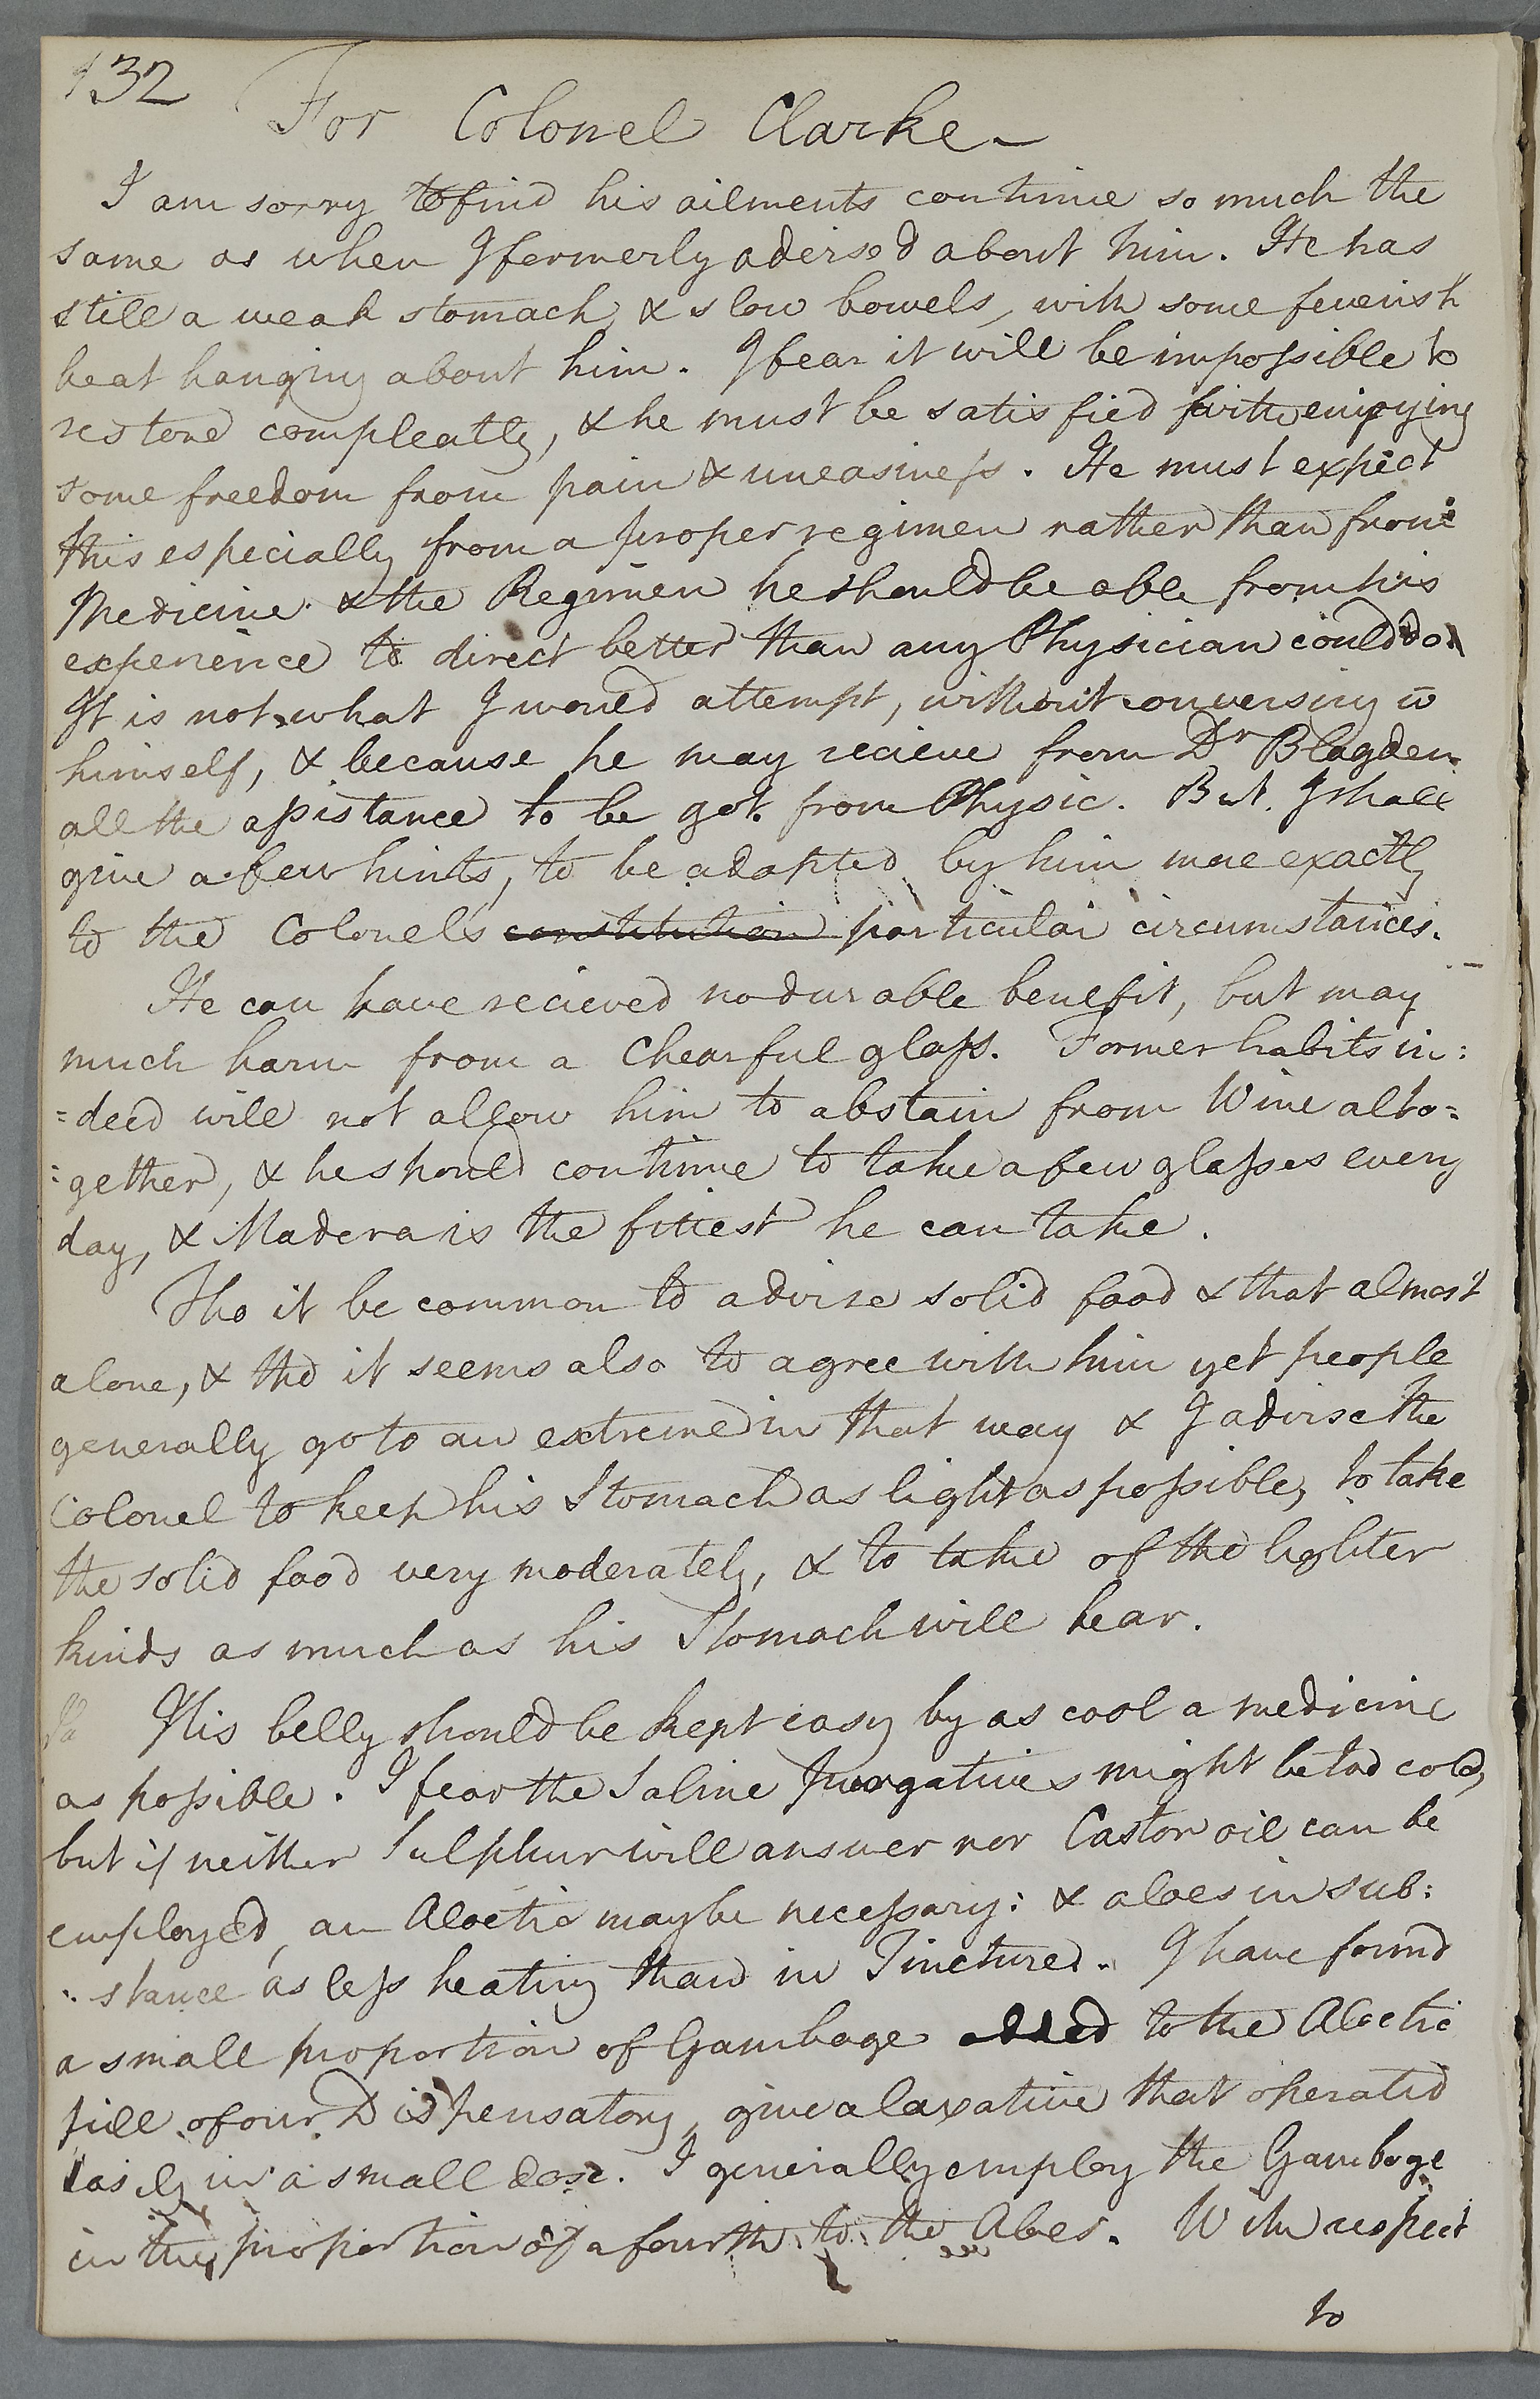 132
For Colonel Clarke_
I am sorry to find his ailments continue so much the
same as when I formerly advised about him. He has
still a weak stomach & slow bowels, with some feverish
heat hanging about him. I fear it will be impossible to
restore compleatly, & he must be satisfied with enjoying
some freedom from pain & uneasiness. He must expect
this especially from a proper regimen rather than from
Medicine. & the Regimen he should be able from his
experience to direct better than any Physician could do.
It is not what I would attempt, without conversing w
himself, & because he may recieve from Dr Blagden
all the assistance to be got from Physic. But I shall
give a few hints, to be adapted by him more exactly
to the Colonel's constitution particular circumstances.
He can have recieved no durable benefit, but may
much harm from a Chearful glass. Former habits in:
=deed will not allow him to abstain from Wine alto=
:gether, & he should continue to take a few glasses every
day, & Madera is the fittest he can take.
Tho it be common to advise solid food & that almost
alone, & tho it seems also to agree with him yet people
generally go to an extreme in that way & I advise the
Colonel to keep his Stomach as light as possible, to take
the solid food very moderately, & to take of the lighter
kinds as much as his Stomach will bear.
His belly should be kept easy by as cool a medicine
as possible. I fear the Saline purgatives might be too cold,
but if neither Sulphur will answer nor Castor oil can be
employed, an Aloetic may be necessary: & aloes in sub:
:stance as less heating than in Tinctured. I have found
a small proportion of Gamboge added to the Aloetic
pill of our Dispensatory, give a laxative that operated
easily in a small dose. I generally employ the Gamboge
in the proportion of a fourth to the Aloes. With respect
to